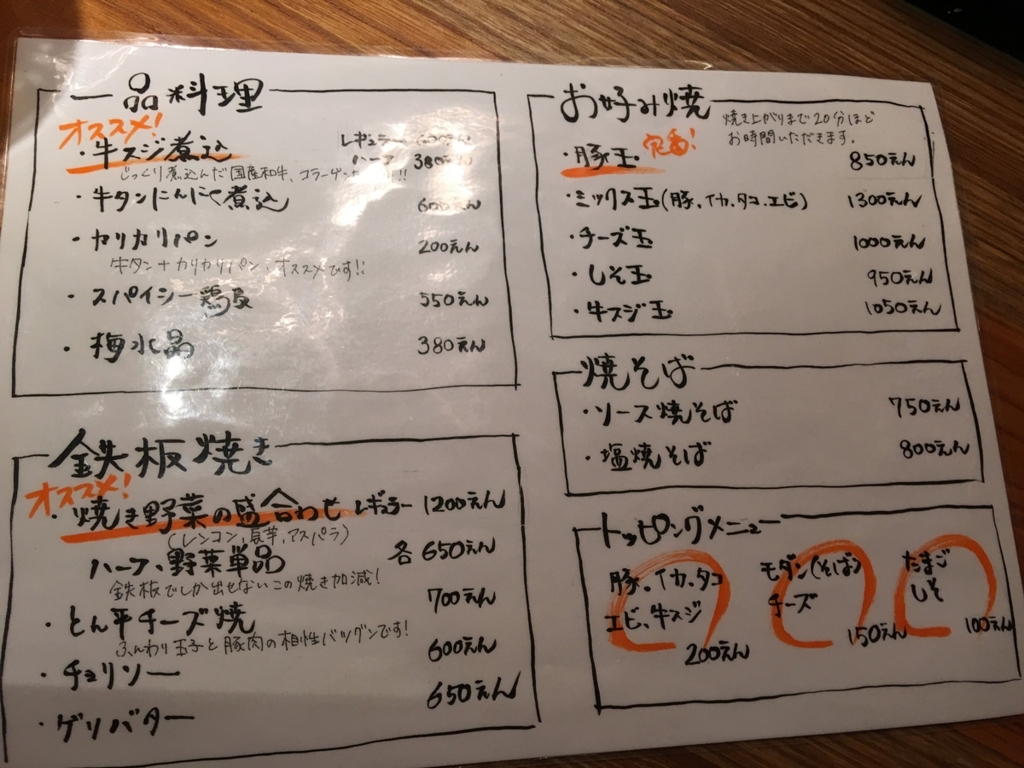 一品料理
オススメ!
・牛スジ煮込 レギュラー 600えん
ハーフ 380えん
じっくり煮込んだ国産和牛、コラーゲン !!
・牛タンにんにく煮込 600えん
・カリカリパン 200えん
牛タン+カリカリパン、オススメです!!
・スパイシー鶏皮 550えん
・梅水晶 380えん
鉄板焼き
オススメ!
・焼き野菜の盛合わせ レギュラー 1200えん
(レンコン、長芋、アスパラ)
ハーフ、野菜単品 各650えん
鉄板でしか出せないこの焼き加減!
・とん平チーズ焼 700えん
ふんわり玉子と豚肉の相性バツグンです!
・チョリソー 600えん
・ゲソバター 650えん
お好み焼
焼き上がりまで20分ほど
お時間いただきます。
・豚玉 定番! 850えん
・ミックス玉(豚、イカ、タコ、エビ) 1300えん
・チーズ玉 1000えん
・しそ玉 950えん
・牛スジ玉 1050えん
焼そば
・ソース焼そば 750えん
・塩焼そば 800えん
トッピングメニュー
豚、イカ、タコ
エビ、牛スジ
200えん
モダン(そば)
チーズ
150えん
たまご
しそ
100えん